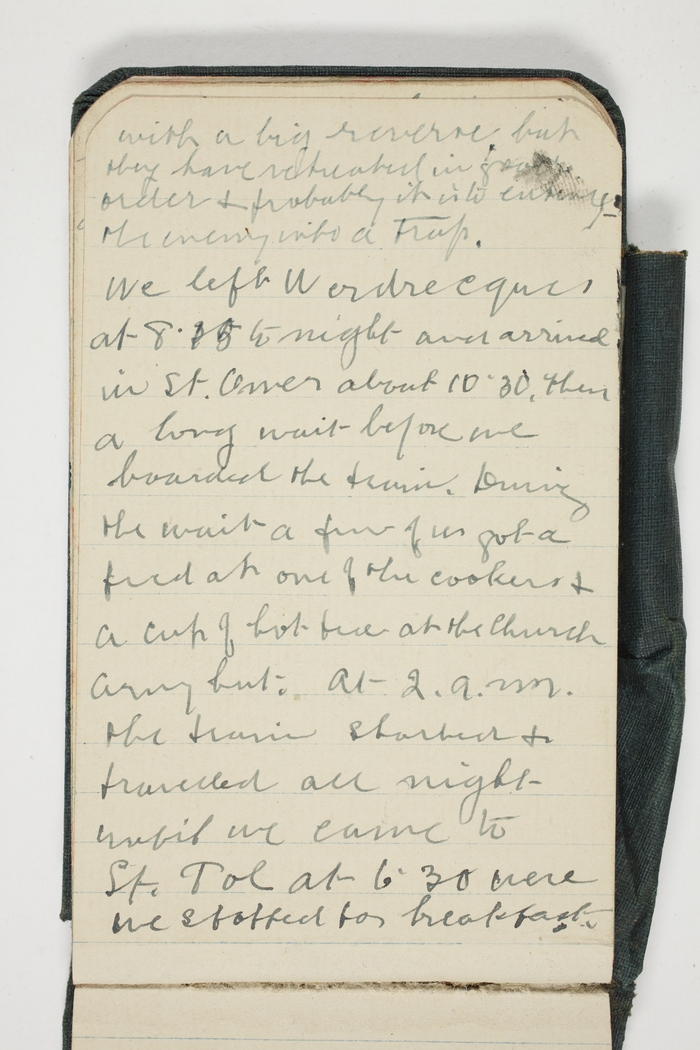 with a big reverse but
they have retreated in good
order & probably it is to entice
the enemy into a Trap.
We left Wordrecques
at 8.15 to night and arrived
in St. Omer about 10.30, then
a long wait before we
boarded the train. During
the wait a few of us got a
feed at one of the cookers &
a cup of hot tea at the Church
Army hut. At 2.a.m.
the train started &
travelled all night
until we came to
St. Pol at 6.30 were
we stopped for breakfast.